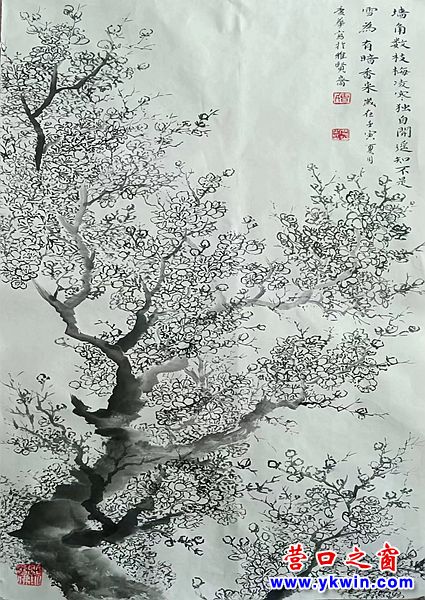 墙角数枝梅凌寒独自開遥知不是
雪為有暗香来 岁在壬寅夏月
華写於雅賢斋
营口之窗
www.ykwin.com